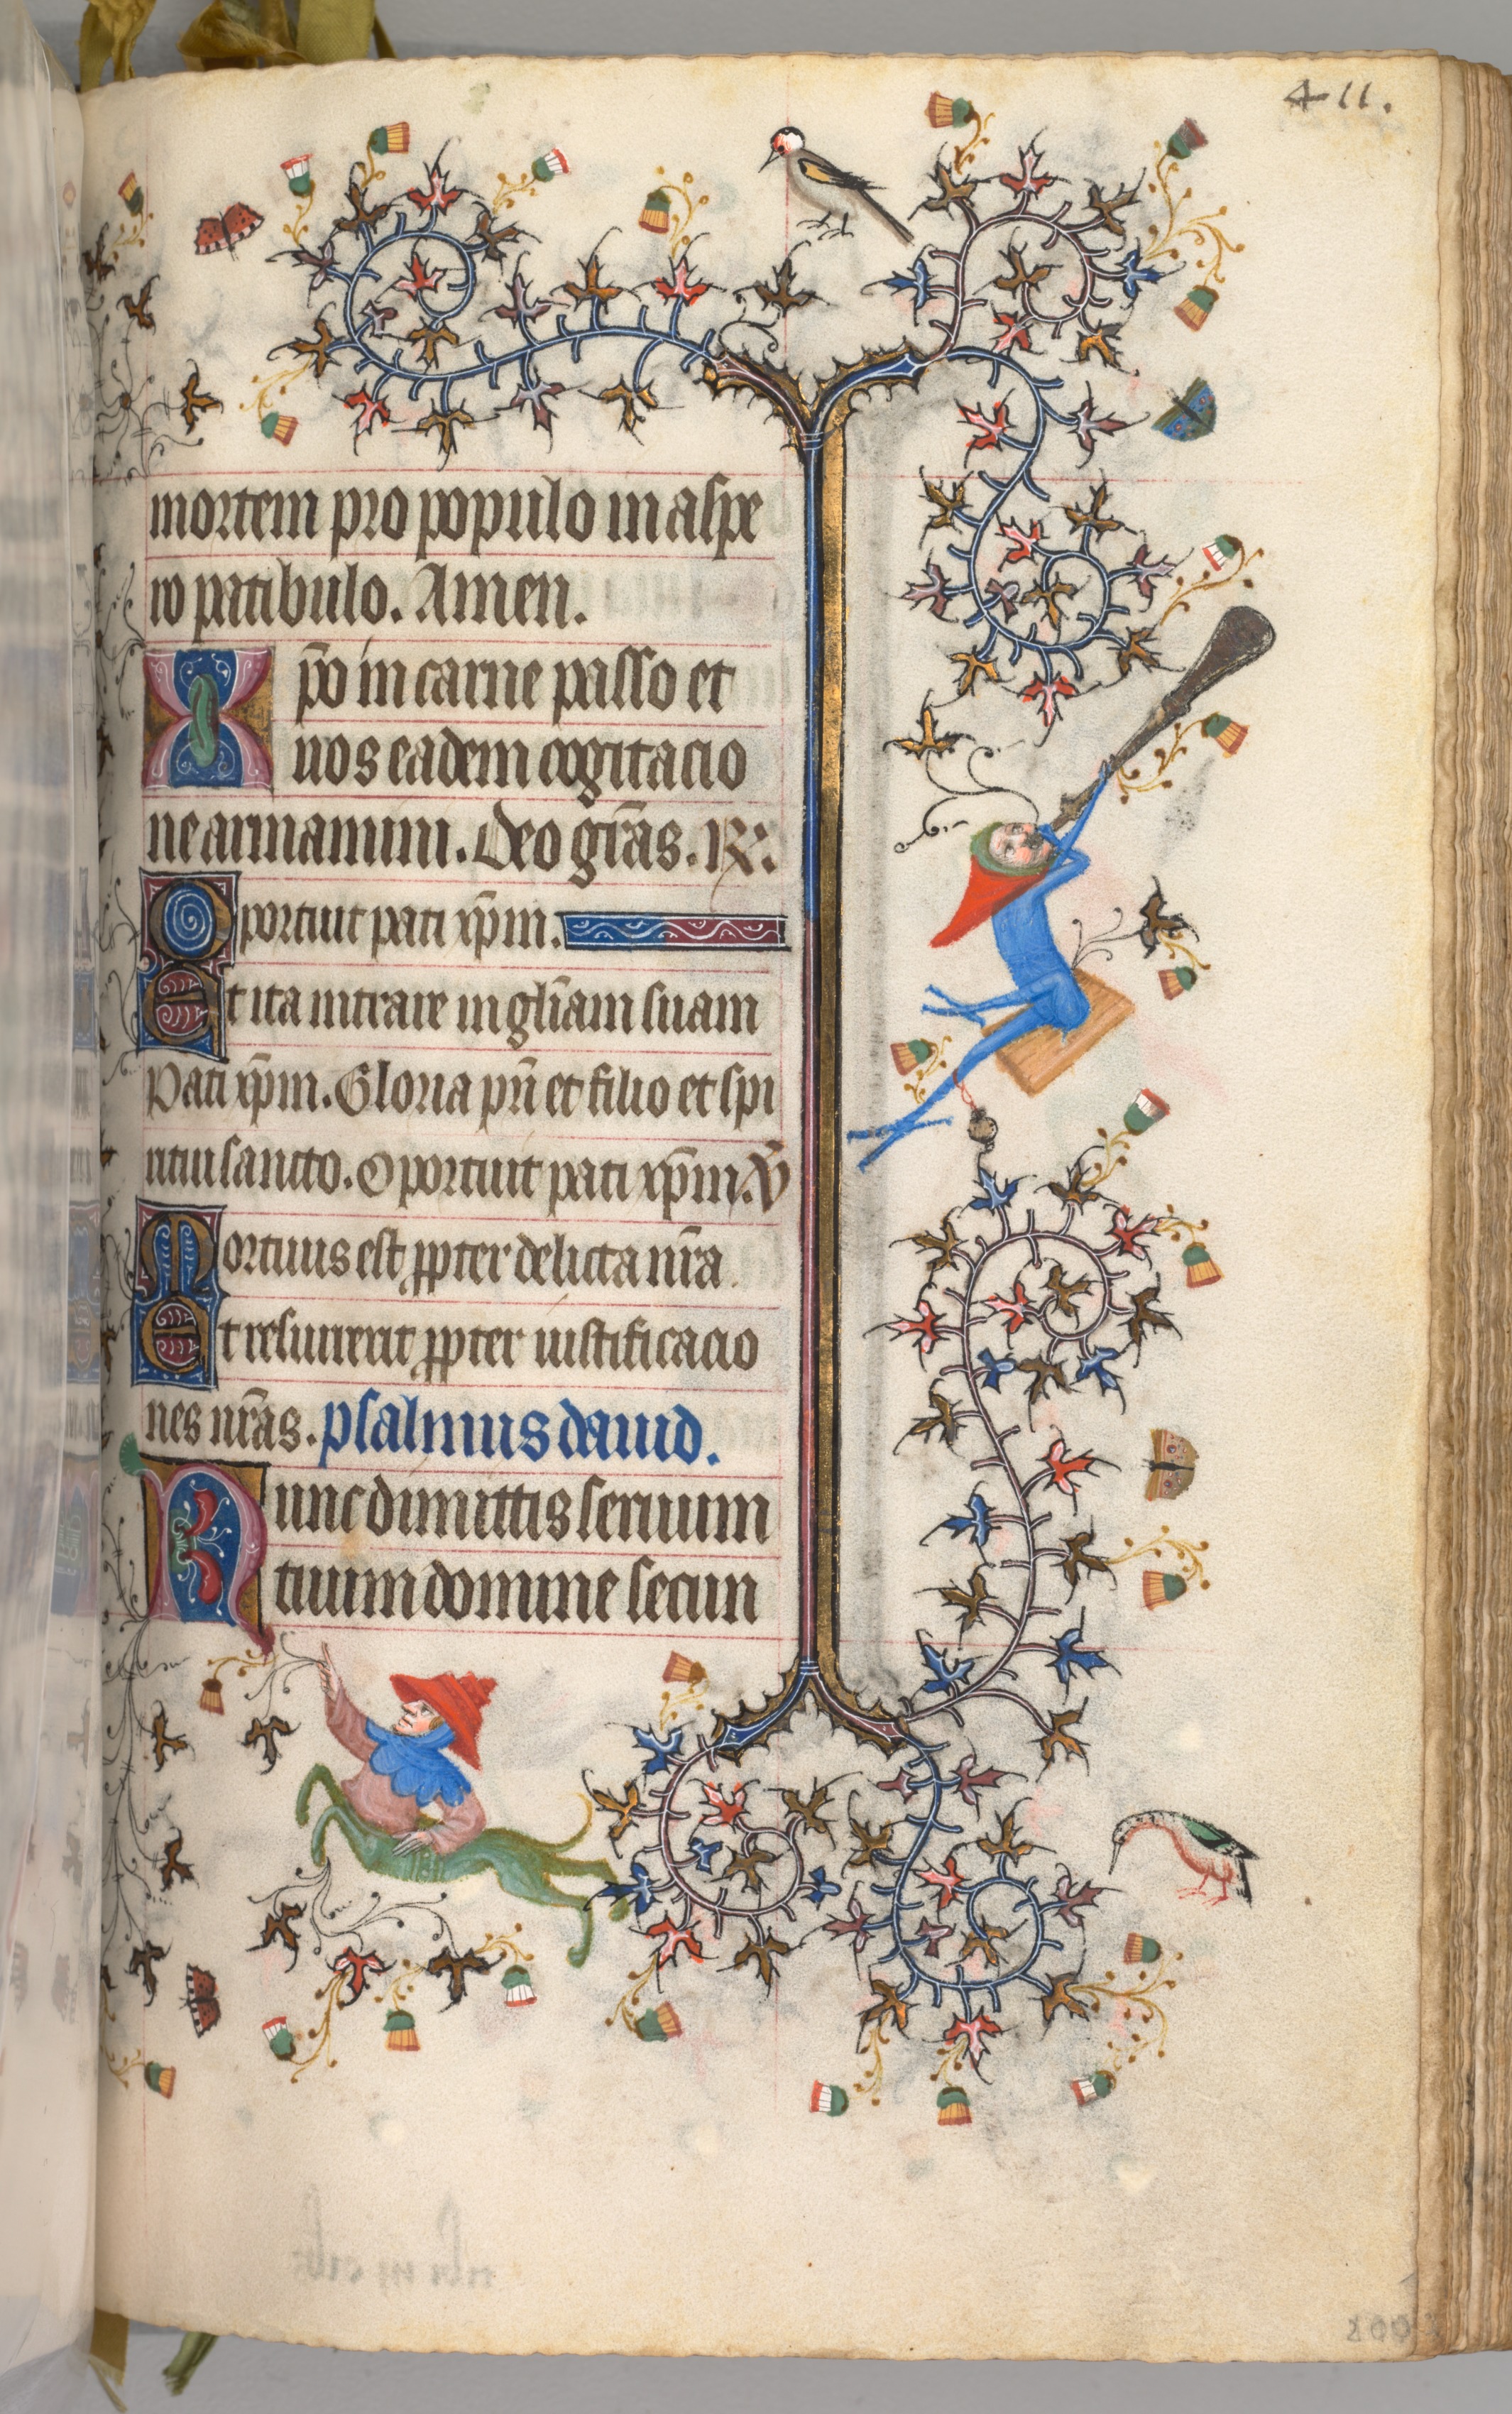 411.
mortem pro populo in aspe
ro patibulo. Amen.
Xp̄o in carne passo et
uos eadem cogitacio
ne armamini. Deo gr̄as. R̃.
Oportuit pati xp̄m.
Et ita intrare in gl̄iam suam
Pati xp̄m. Gloria pr̄i et filio et spi
ritui sancto. Oportuit pati xp̄m. V̄
Mortuus est ꝓpter delicta nr̄a
Et resurrexit ꝓpter iustificacio
nes nr̄as. psalmus dauid.
Nunc dimittis seruum
tuum domine secun